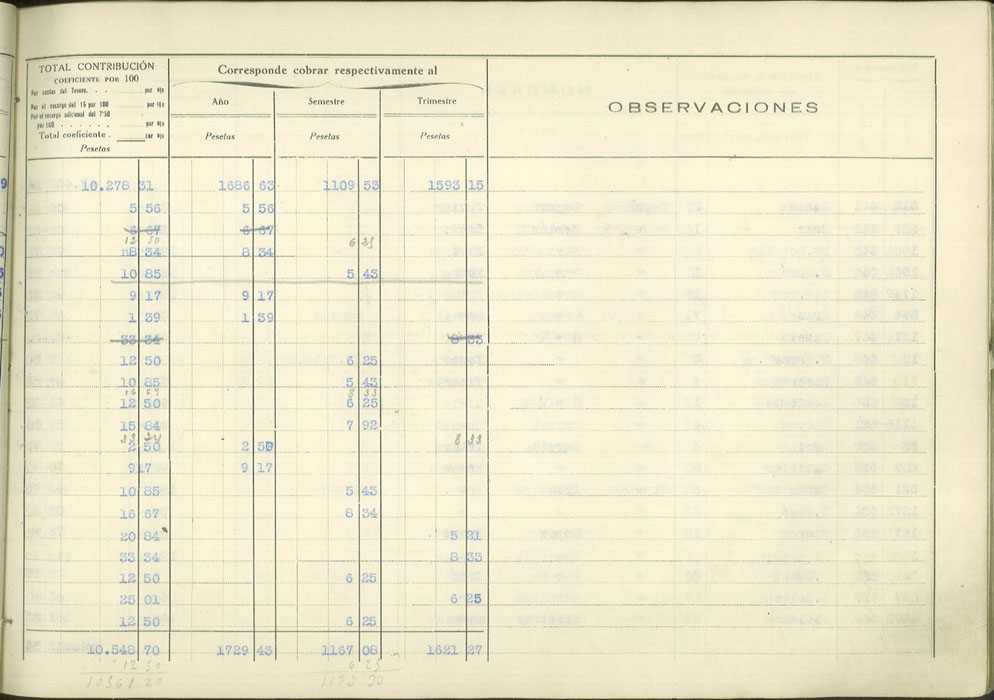 TOTAL CONTRIBUCIÓN
COEFICIENTE POR 100
Por cuotas del Tesoro. . . por %
Por el recargo del 16 por 100 por %
Por el recargo adicional del 7'50
por 100 . . . . . . por %
Total coeficiente . por %
Pesetas
Corresponde cobrar respectivamente al
Año Semestre Trimestre
Pesetas Pesetas Pesetas
OBSERVACIONES
10.278 31 1686 63 1109 53 1593 15
5 56 5 56
6 67 6 67
12 50 6 25
8 34 8 34
10 85 5 43
9 17 9 17
1 39 1 39
33 34 8 33
12 50 6 25
10 85 5 43
16 67 8 33
12 50 6 25
15 84 7 92
33 34 8 33
2 50 2 50
9 17 9 17
10 85 5 43
16 67 8 34
20 84 5 21
33 34 8 33
12 50 6 25
25 01 6 25
12 50 6 25
10.548 70 1729 43 1167 08 1621 27
12 50 6 25
10561 20